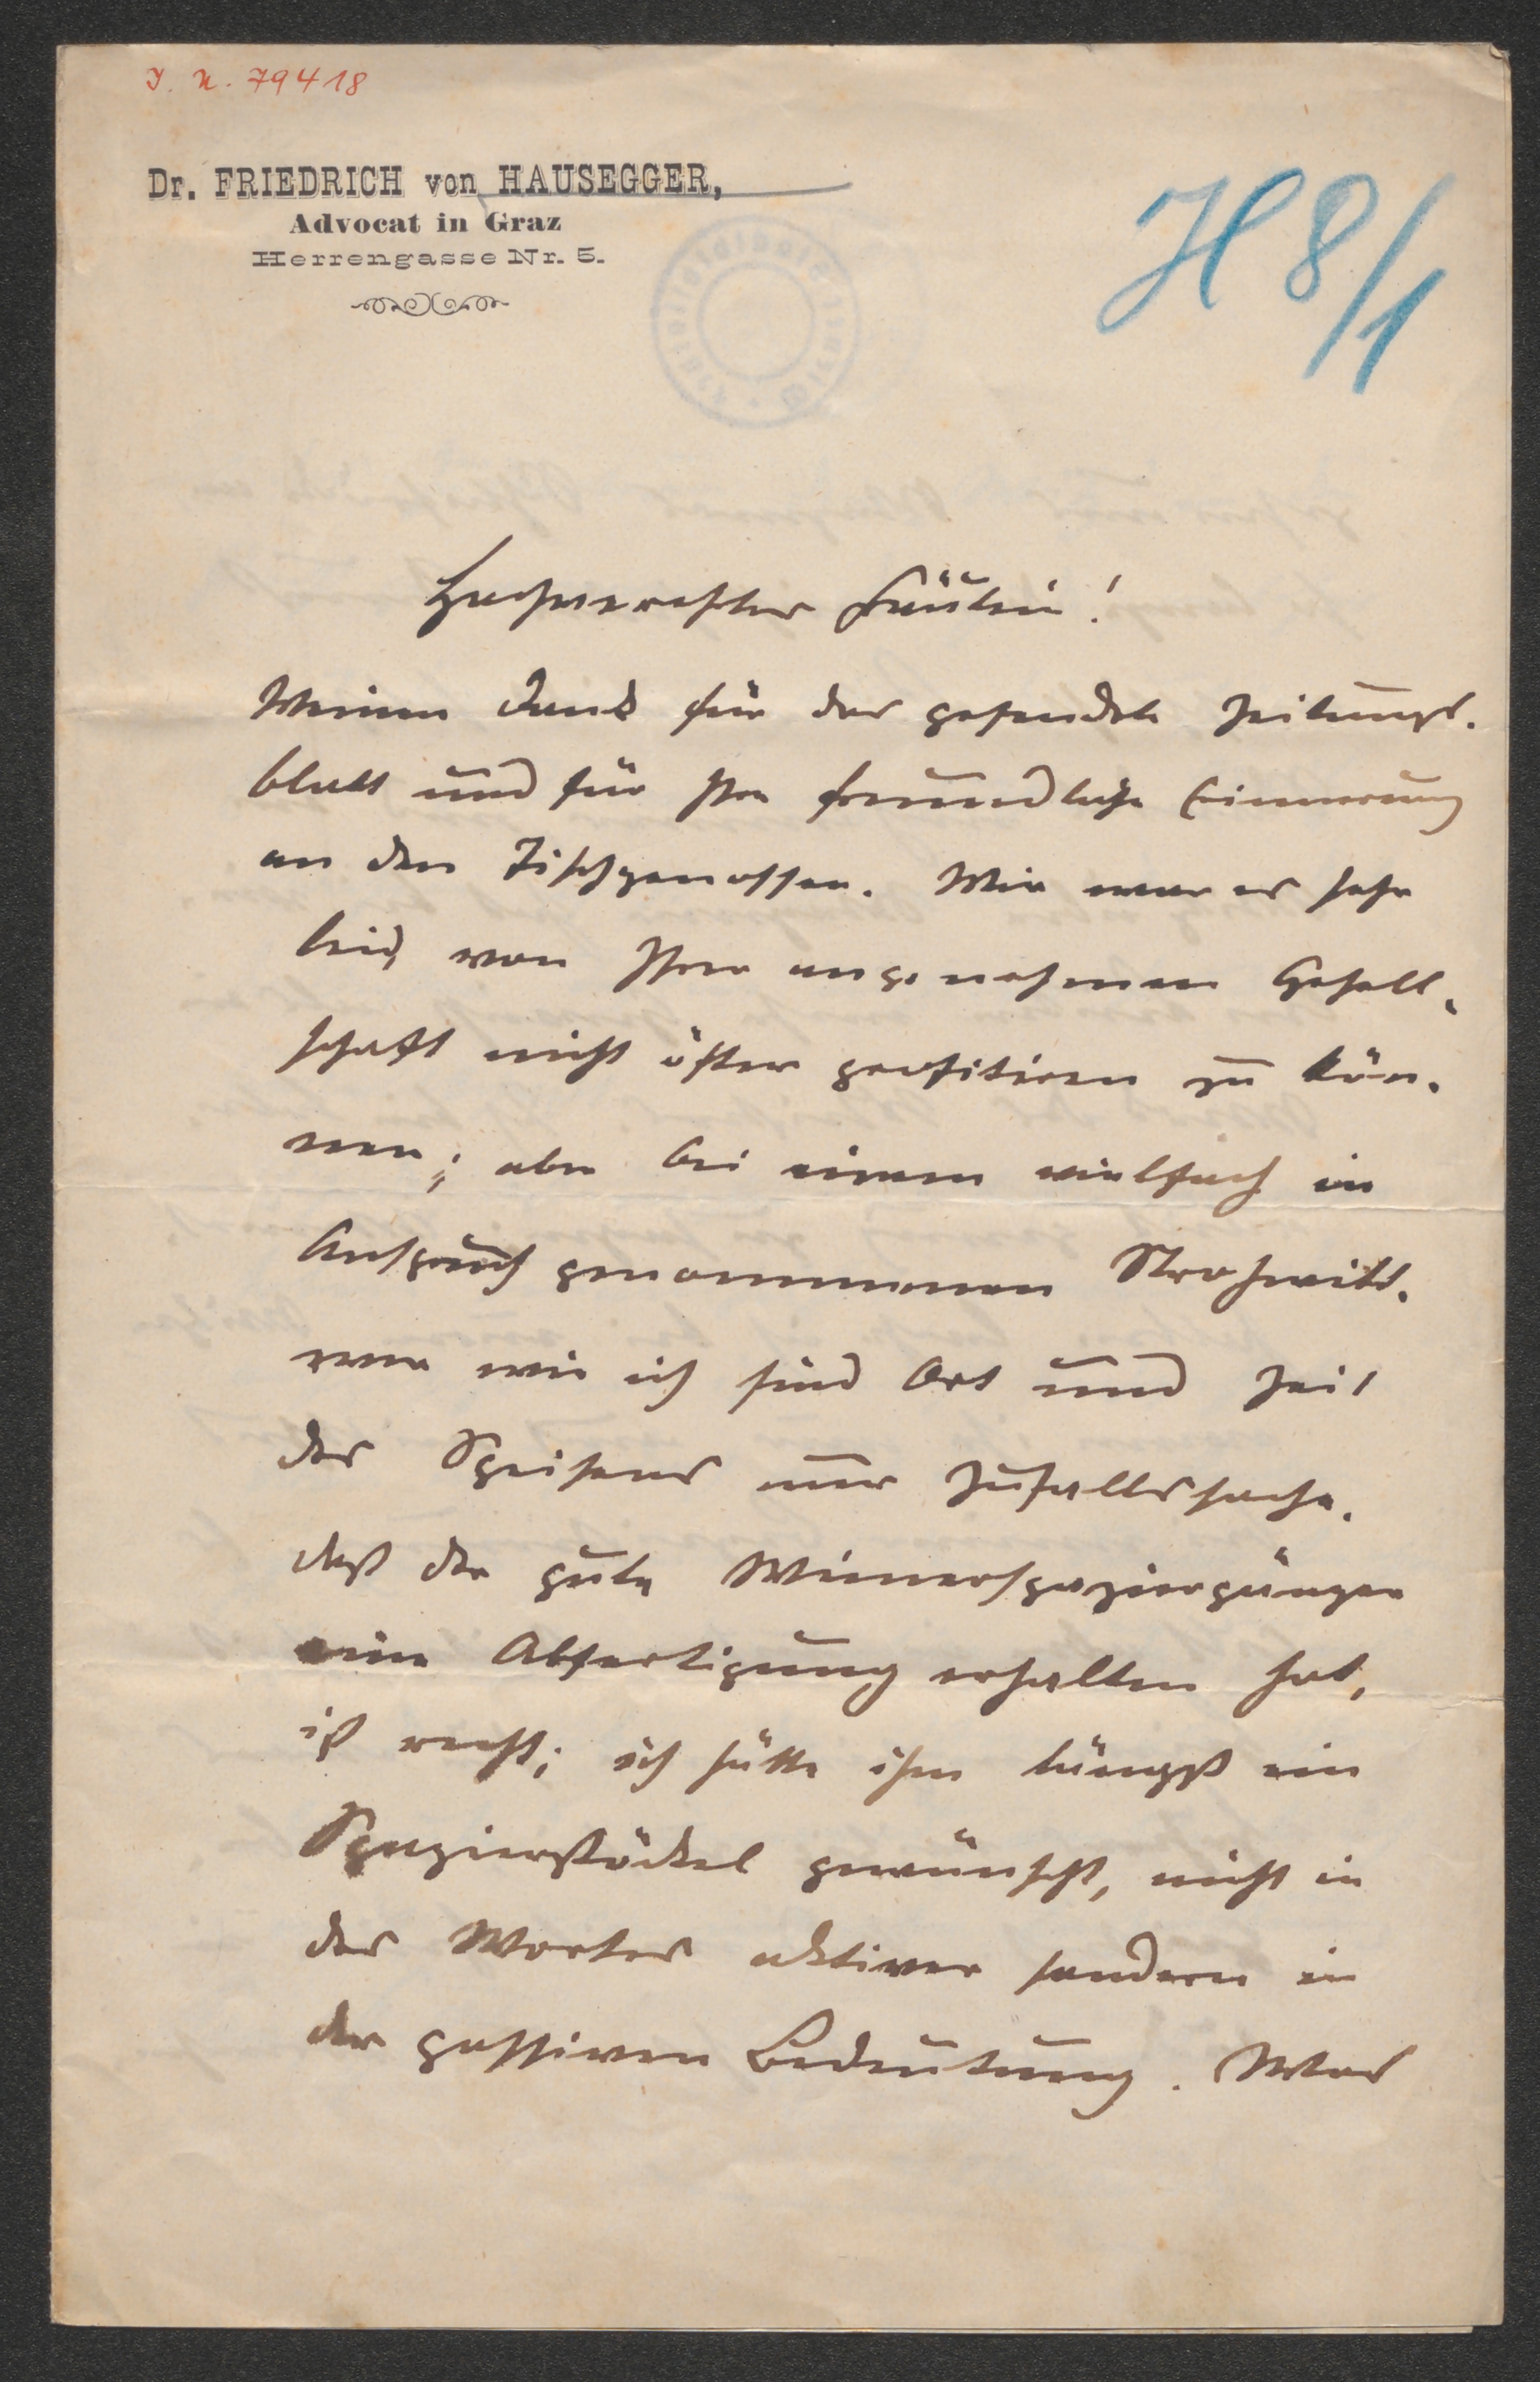 J. N. 79418
Dr. FRIEDRICH von HAUSEGGER,
Advocat in Graz
Herrengasse Nr. 5.
H 8/1
Hochverehrtes Fräulein!
Meinen Dank für das gesendete Zeitungs-
blatt und für Ihre freundliche Erinnerung
an den Tischgenossen. Mir war es sehr
leid, von Ihrer angenehmen Gesell-
schaft nicht öfter profitiren zu kön-
nen; aber bei einem vielfach in
Anspruch genommenen Strohwitt-
wer wie ich sind Ort und Zeit
des Speisens nur Zufallssache.
Daß der gute Wienerspaziergänger
eine Abfertigung erhalten hat,
ist recht; ich hätte ihm längst ein
Spazierstöckel gewünscht, nicht in
des Wortes aktiver sondern in
der passiven Bedeutung. Was